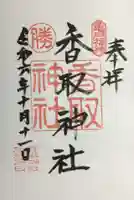 奉拝
香取神社
香取神社
勝
令和六年十月十一日